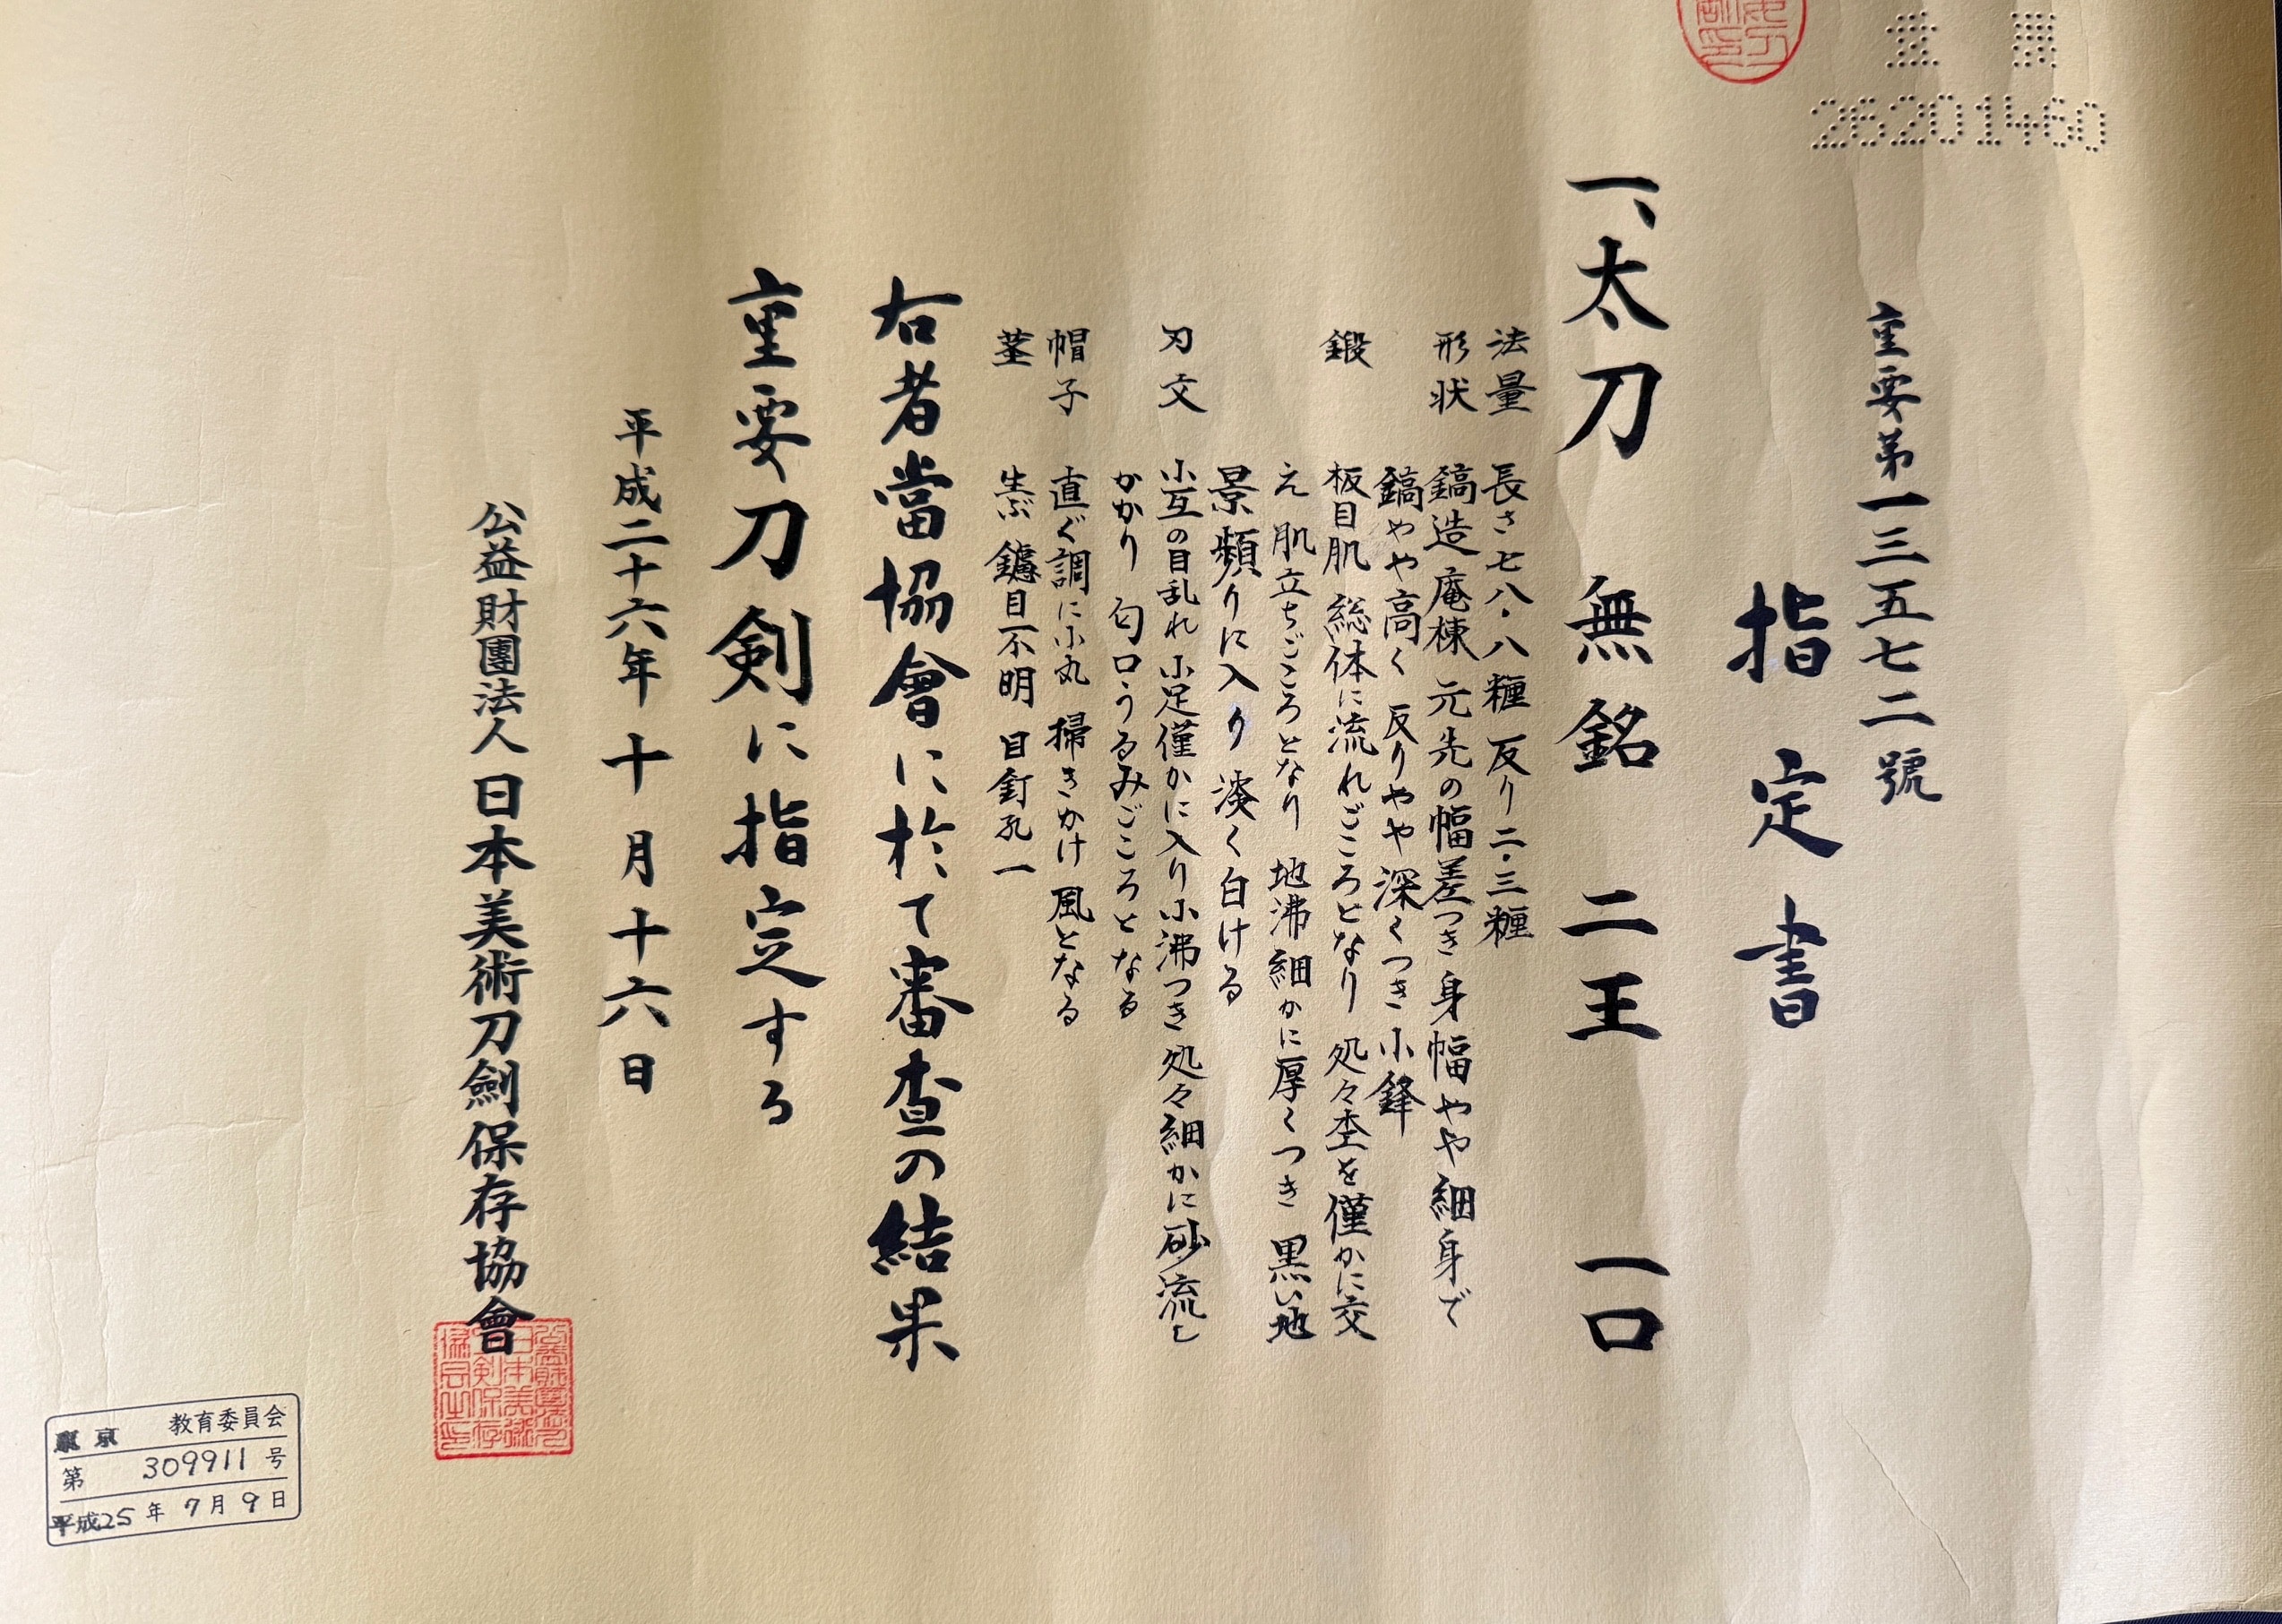 重要第一三五七二號
指定書
一、太刀 無銘 二王 一口
法量 長さ七八・八糎 反り二・三糎
形状 鎬造 庵棟 元先の幅差つき 身幅やや細身で
鎬やや高く 反りやや深くつき 小鋒
鍛 板目肌 総体に流れごころとなり 処々杢を僅かに交
え 肌立ちごころとなり 地沸細かに厚くつき 黒い地
景頻りに入り 淡く白ける
刃文 小互の目乱れ 小足僅かに入り 小沸つき 処々細かに砂流し
かかり 匂口うるみごころとなる
帽子 直ぐ調に小丸 掃きかけ風となる
茎 生ぶ 鑢目不明 目釘孔一
右者當協會に於て審査の結果
重要刀剣に指定する
平成二十六年十月十六日
公益財團法人日本美術刀劍保存協會
東京 教育委員会
第 309911 号
平成25年7月9日
26201460